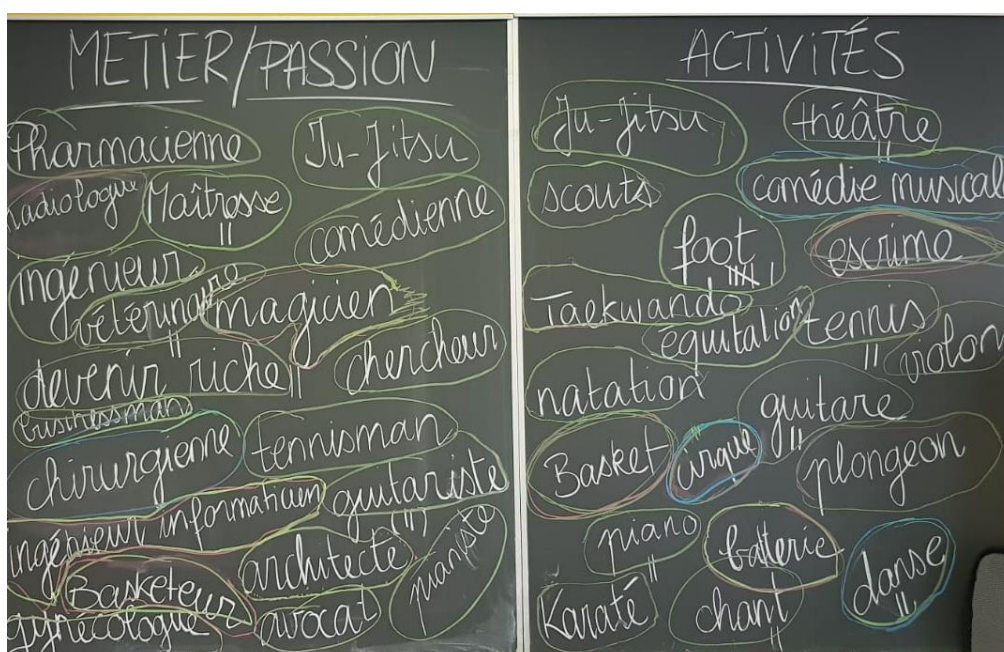 METIER/PASSION
Pharmacienne
Ju-Jitsu
radiologue
Maîtresse
||
comédienne
ingénieur
vétérinaire
||
magicien
||
devenir riche
chercheur
businessman
chirurgienne
tennisman
guitariste
(||)
ingénieur informaticien
architecte
pianiste
Basketeur
avocat
gynécologue
ACTIVITÉS
Ju-Jitsu
théâtre
||
scouts
comédie musical
foot
||||
escrime
Taekwando
équitation
tennis
||
violon
natation
guitare
||
Basket
cirque
plongeon
piano
||
batterie
danse
||
Karaté
chant
||